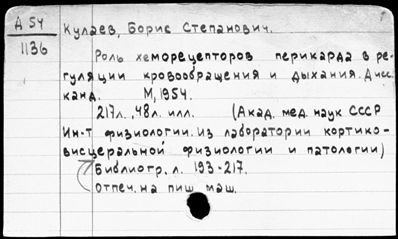 Д 54
1136
Кулаев, Борис Степанович.
Роль хеморецепторов перикарда в ре-
гуляции кровообращения и дыхания. Дисс.
канд. М, 1954.
217л., 48л. илл. (Акад. мед. наук СССР
Ин-т физиологии. Из лаборатории кортико-
висцеральной физиологии и патологии)
Библиогр. л. 193-217.
Отпеч. на пиш маш.